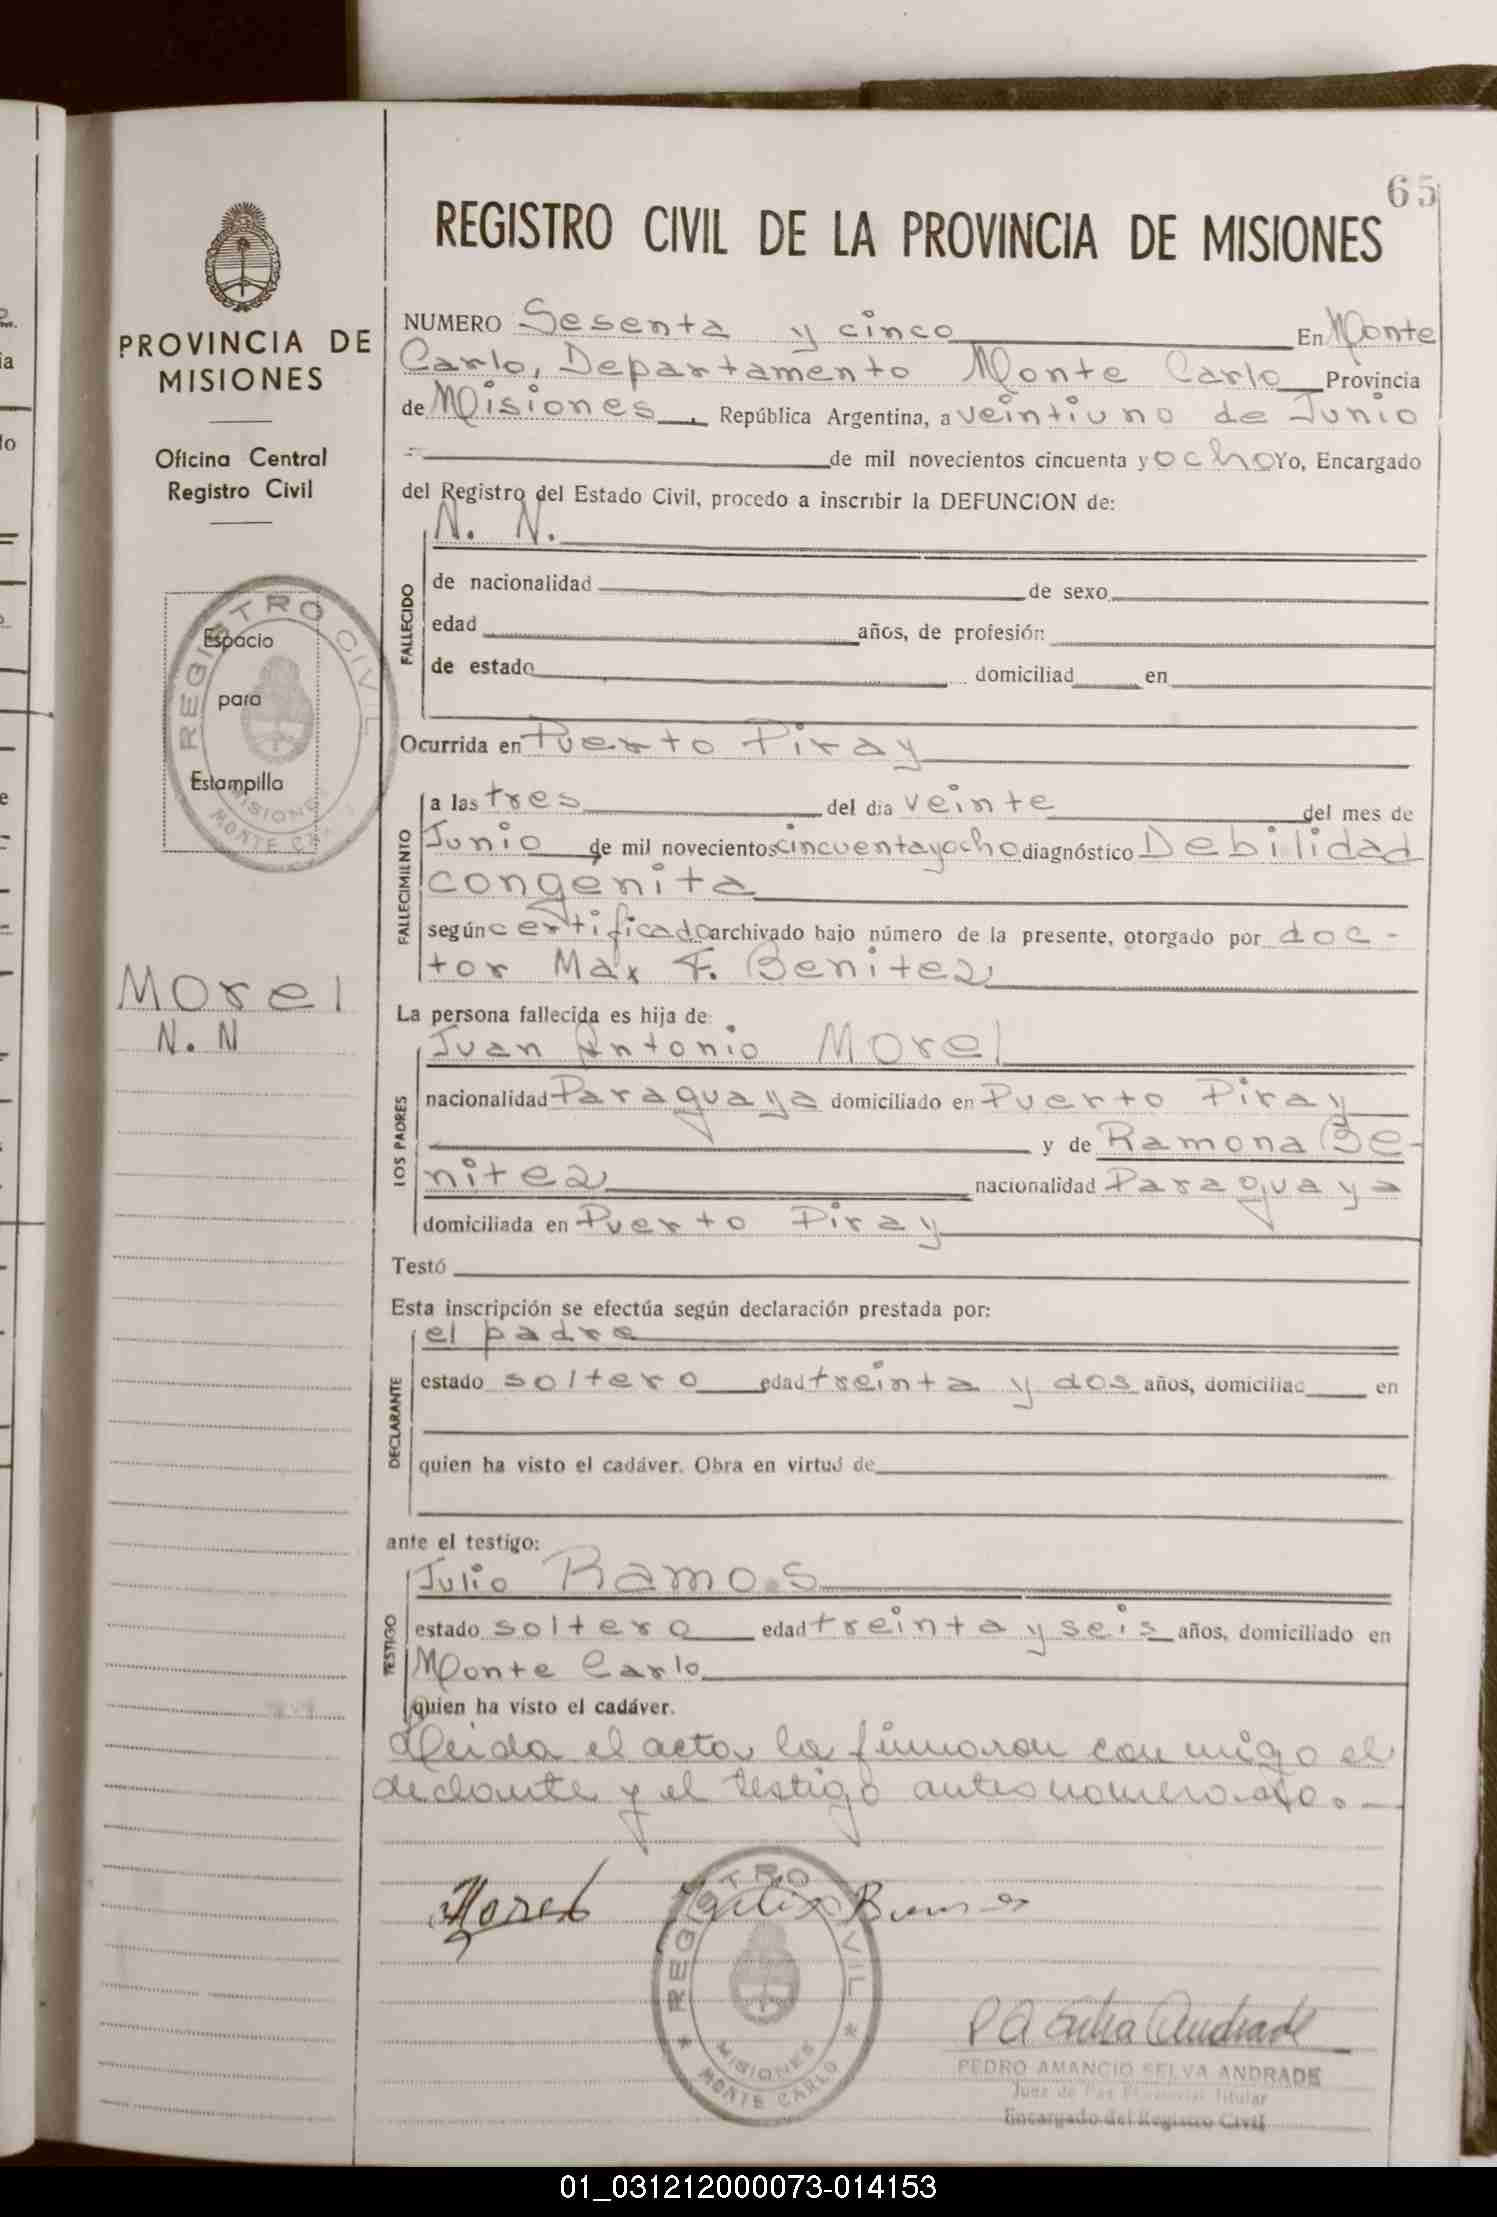 65
REGISTRO CIVIL DE LA PROVINCIA DE MISIONES
PROVINCIA DE
MISIONES
Oficina Central
Registro Civil
REGISTRO CIVIL
Espacio
para
Estampilla
MISIONES
MONTE CA
Morel
N. N
NUMERO Sesenta y cinco En Monte
Carlo, Departamento Monte Carlo Provincia
de Misiones, República Argentina, a veintiuno de Junio
de mil novecientos cincuenta y ocho Yo, Encargado
del Registro del Estado Civil, procedo a inscribir la DEFUNCION de:
N. N.
FALLECIDO
de nacionalidad de sexo
edad años, de profesión
de estado domiciliad en
Ocurrida en Puerto Piray
FALLECIMIENTO
a las tres del dia veinte del mes de
Junio de mil novecientos cincuenta y ocho diagnóstico Debilidad
congenita
según certificado archivado bajo número de la presente, otorgado por doc-
tor Max F. Benitez
La persona fallecida es hija de:
LOS PADRES
Juan Antonio Morel
nacionalidad Paraguaya domiciliado en Puerto Piray
y de Ramona Be-
nitez nacionalidad Paraguaya
domiciliada en Puerto Piray
Testó
Esta inscripción se efectúa según declaración prestada por:
DECLARANTE
el padre
estado soltero edad treinta y dos años, domiciliad en
quien ha visto el cadáver. Obra en virtud de
ante el testigo:
TESTIGO
Julio Ramos
estado soltero edad treinta y seis años, domiciliado en
Monte Carlo
quien ha visto el cadáver.
Leida el acta, la firmaron conmigo el
declante y el testigo antes nomerado.
Morel
REGISTRO CIVIL
MISIONES
MONTE CARLO
P A Selva Andrade
PEDRO AMANCIO SELVA ANDRADE
Juez de Paz Provincial Titular
Encargado del Registro Civil
01_031212000073-014153